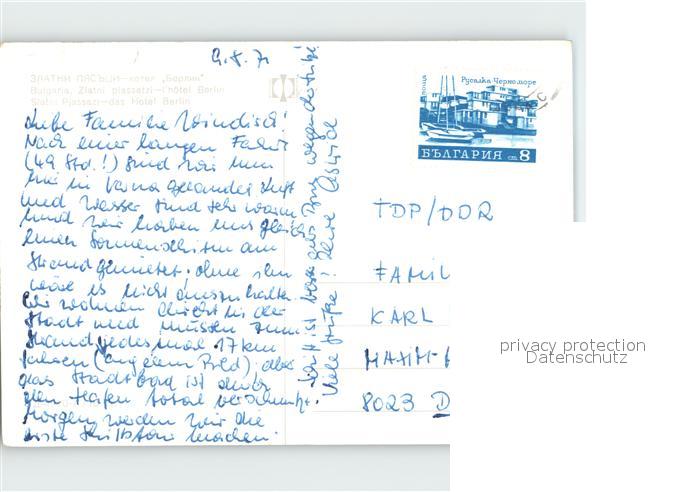 9.8.71
ЗЛАТНИ ПЯСЪЦИ—хотел „Берлин"
Bulgaria, Zlatni piassatzi—l'hôtel Berlin
Slatni Pjassazi—das Hotel Berlin
Liebe Familie Windisch!
Nach einer langen Fahrt
(49 Std.!) sind wir nun
hier in Varna gelandet. Luft
und Wasser sind sehr warm
und wir haben uns gleich
einen Sonnenschirm am
Strand gemietet. ohne ihn
wäre es nicht auszuhalten.
Wir wohnen direkt in der
Stadt und müssen zum
Strand jedesmal 17 km
fahren (auf dem Bild), aber
das Stadtbad ist durch
den Hafen total verschmutzt.
Morgen werden wir die
erste Schiffstour machen.
Viele Grüße!
поща
Русалка Черноморе
БЪЛГАРИЯ ст. 8
TDP/DDR
FAMIL
KARL
MAXIM
8023 D
privacy protection
Datenschutz